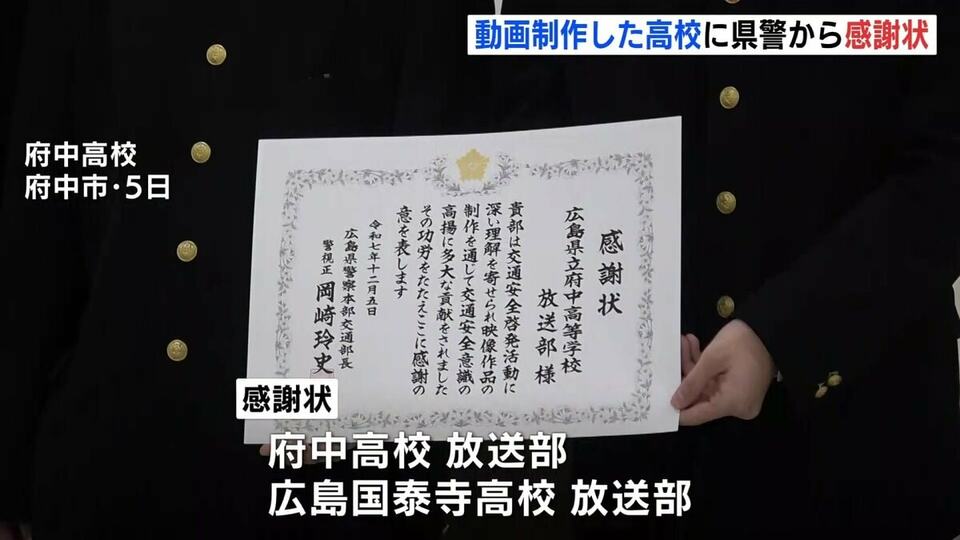 動画制作した高校に県警から感謝状
府中高校
府中市・5日
感謝状
広島県立府中高等学校
放送部様
貴部は交通安全啓発活動に
深い理解を寄せられ映像作品の
制作を通じて交通安全意識の
高揚に多大な貢献をされました
その功労をたたえここに感謝の
意を表します
令和七年十二月五日
広島県警察本部交通部長
警視正 岡崎玲史
感謝状
府中高校 放送部
広島国泰寺高校 放送部